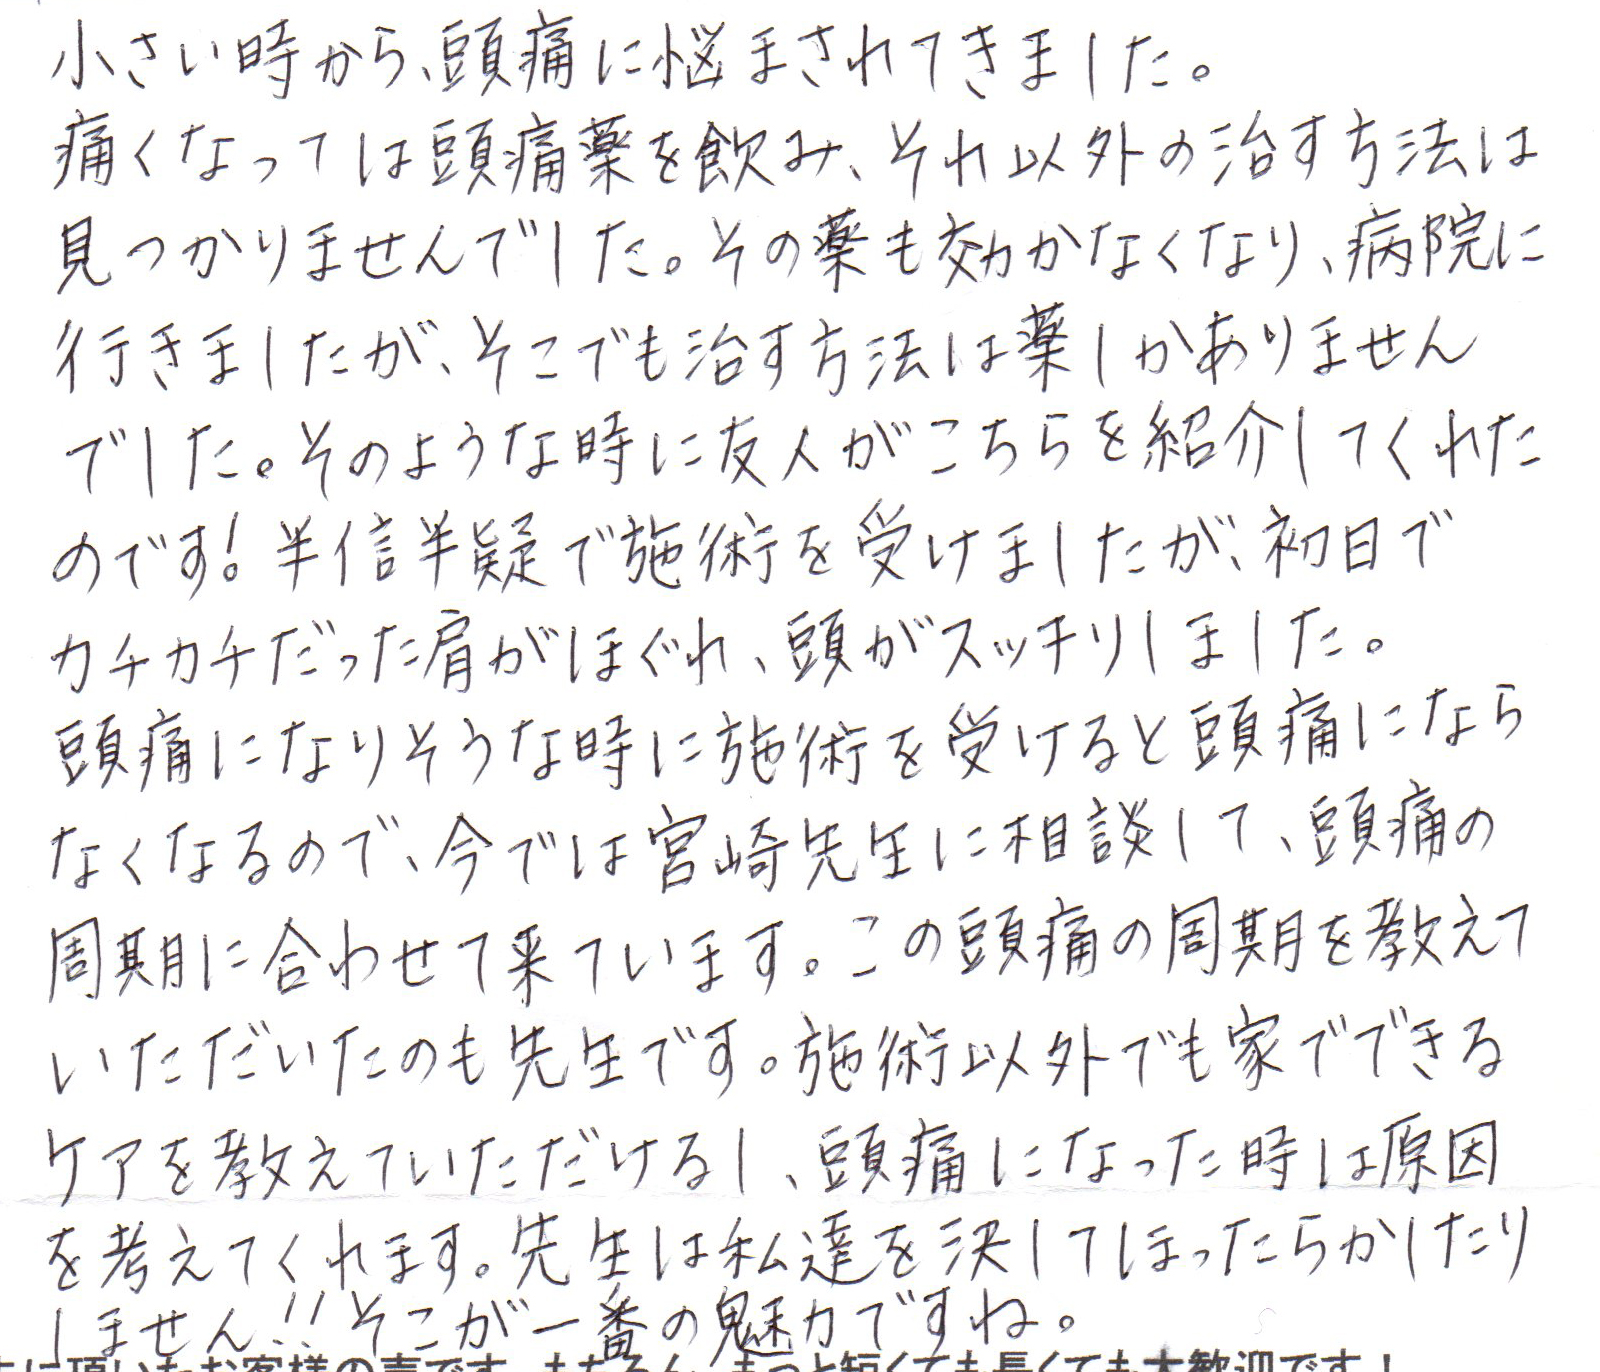 小さい時から、頭痛に悩まされてきました。
痛くなっては頭痛薬を飲み、それ以外の治す方法は
見つかりませんでした。その薬も効かなくなり、病院に
行きましたが、そこでも治す方法は薬しかありません
でした。そのような時に友人がこちらを紹介してくれた
のです!半信半疑で施術を受けましたが、初日で
カチカチだった肩がほぐれ、頭がスッキリしました。
頭痛になりそうな時に施術を受けると頭痛になら
なくなるので、今では宮崎先生に相談して、頭痛の
周期に合わせて来ています。この頭痛の周期を教えて
いただいたのも先生です。施術以外でも家でできる
ケアを教えていただけるし、頭痛になった時は原因
を考えてくれます。先生は私達を決してほったらかしたり
しません!!そこが一番の魅力ですね。
に頂いたお客様の声です。もちろん、もっと短くても長くても大歓迎です!